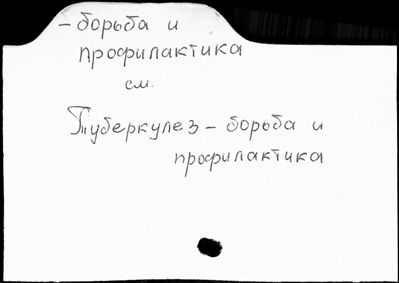 - борьба и
профилактика
см.
Туберкулез - борьба и
профилактика